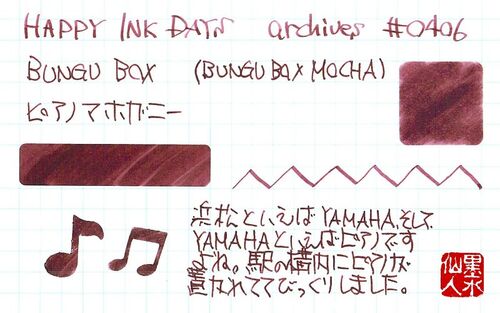 HAPPY INK DAYS archives #0406
BUNGU BOX (BUNGU BOX MOCHA)
ピアノマホガニー
浜松といえばYAMAHA、そして
YAMAHAといえばピアノです
よね。駅の構内にピアノが
置かれててびっくりしました。
墨水
仙人